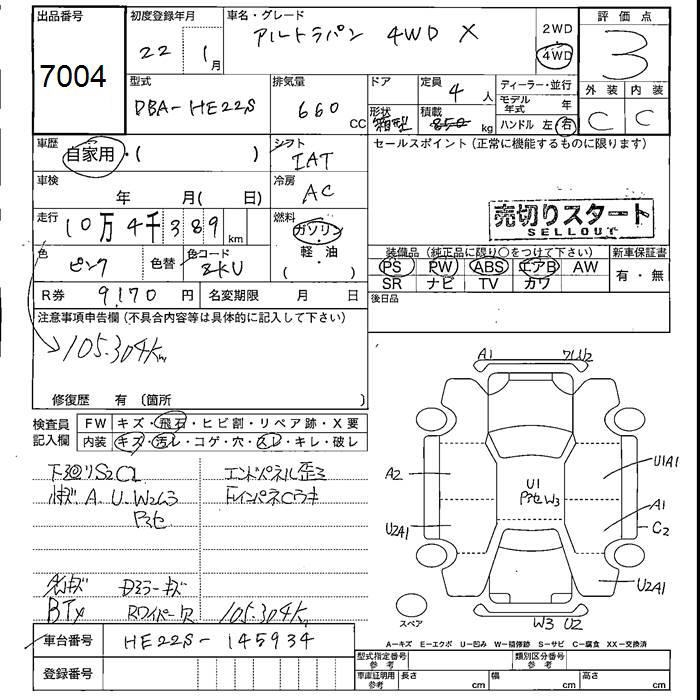 出品番号
7004
初度登録年月
22 1月
車名・グレード
アルトラパン 4WD X
2WD
4WD
評価点
3
外装 内装
C C
型式
DBA-HE22S
排気量
660 CC
ドア
形状
箱型
定員
4人
積載
850 kg
ディーラー・並行
モデル年式 年
ハンドル 左 右
車歴
自家用・( )
シフト
IAT
セールスポイント(正常に機能するものに限ります)
車検
年 月( 日)
冷房
AC
売切りスタート
SELLOUT
走行
10万4千389 km
燃料
ガソリン
軽・油
( )
色
ピンク
色替
色コード
ZKU
装備品(純正品に限り○をつけて下さい)
新車保証書
PS PW ABS エアB AW
SR ナビ TV カワ
有・無
R券 9170円
名変期限 月 日
後日品
注意事項申告欄(不具合内容等は具体的に記入して下さい)
105.304Km
修復歴 有 (箇所 )
検査員
記入欄
FW キズ・飛石・ヒビ割・リペア跡・X要
内装 キズ・汚レ・コゲ・穴・スレ・キレ・破レ
下廻りS2C2
エンドパネル歪ミ
A.U.W2
FインパネCウキ
Dミラーキズ
Rワイパー欠
105.304K
車台番号
HE22S-145934
登録番号
A1
A2
U2A1
U1
W3
U1A1
A1
C2
U2A1
W3 U2
スペア
A－キズ E－エクボ U－凹み W－補修跡 S－サビ C－腐食 XX－交換済
型式指定番号
参考
類別区分番号
参考
車庫証明用
参考
長さ cm
幅 cm
高さ cm